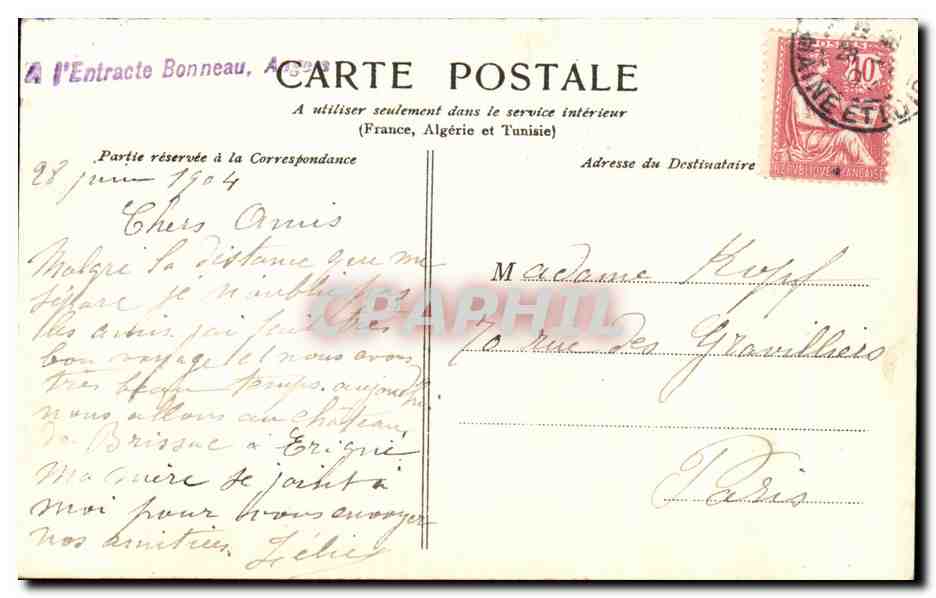 A l'Entracte Bonneau, Angers
CARTE POSTALE
A utiliser seulement dans le service intérieur
(France, Algérie et Tunisie)
Partie réservée à la Correspondance
Adresse du Destinataire
POSTES
10
REPUBLIQUE FRANÇAISE
MAINE ET LOIRE
28 juin 1904
Chers Amis
Malgré la distance que me
sépare je n'oublie pas
les amis j'ai fait très
bon voyage et nous avons
très beau temps aujourd'hui
nous allons au château
de Brissac à Erigné
Ma mère se joint à
moi pour vous envoyer
nos amitiées. Zélie
Madame Kopf
70 rue des Gravilliers
Paris
CPAPHIL